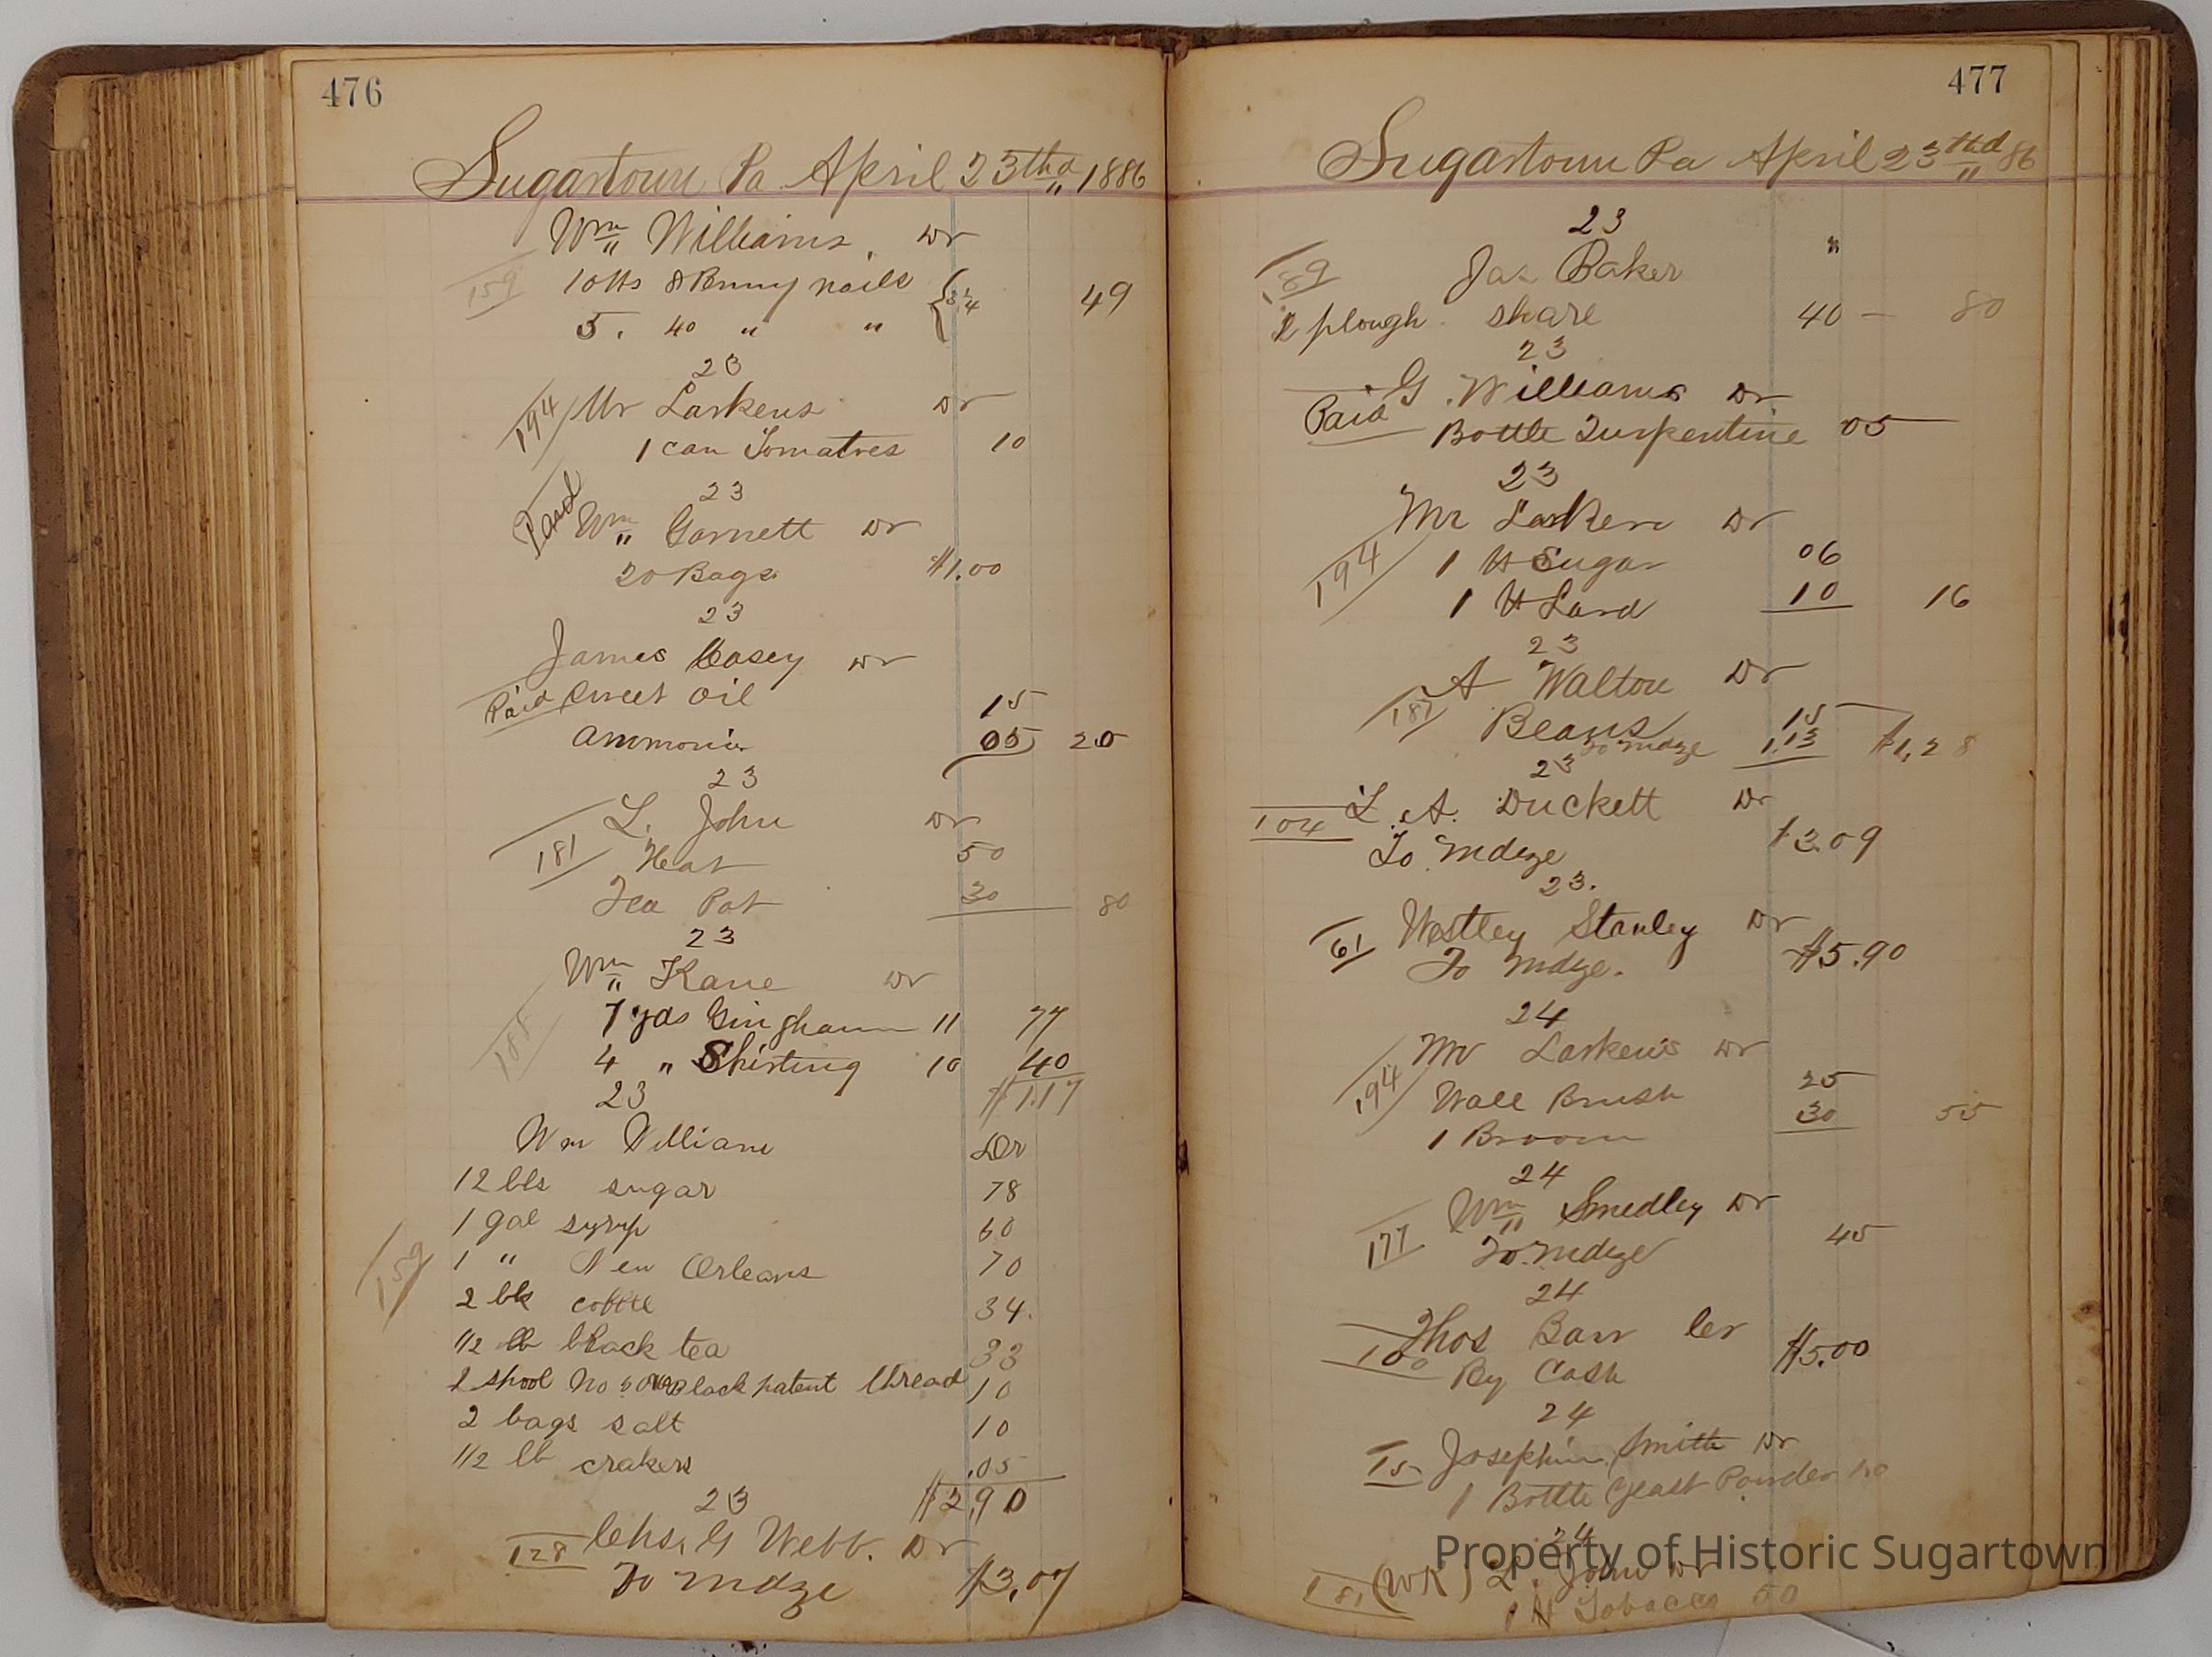 476
Sugartown Pa April 23thd 1886
Wm Williams Dr
159 10 lbs 8 Penny nails 3¼ 49
5 . 40 " "
23
194 Mr Larkens Dr
1 can Tomatoes 10
23
Paid Wm Garnett Dr
20 Bags $1.00
23
James Casey Dr
Paid Sweet Oil 15
Ammonia 05 20
23
L. John Dr
181 50
Tea Pot 30 80
23
Wm Kane Dr
7 yds Gingham 11 77
4 " Shirting 10 40
23 $1.17
Wm William Dr
12 lbs sugar 78
1 gal syrup 60
159 1 " New Orleans 70
2 lbs coffee 34.
1/2 lb black tea 33
2 spool No black patent thread 10
2 bags salt 10
1/2 lb crakers .05
23 $2,90
128 Chs. G Webb. Dr
To Mdze $3.07
477
Sugartown Pa April 23thd 86
23 "
Jas Baker
2 plough share 40 — 80
23
G. Williams Dr
Paid Bottle Turpentine 05
23
Mr Larken Dr
194 1 lb Sugar 06
1 lb Lard 10 16
23
A Walton Dr
187 Beans 15
To Mdze 1,13 $1,28
23
L. A. Duckett Dr
104 To Mdze $3.09
23.
61 Westley Stanley Dr
To Mdze. $5.90
24
Mr Larkens Dr
194 Wall Brush 25
1 Broom 30 55
24
Wm Smedley Dr
177 To Mdze 45
24
Thos Barr Cr
100 By Cash $5.00
24
15 Josephine Smith Dr
1 Bottle Yeast Powder 10
24
181 (WK) L. John Dr
1 lb Tobacco 50
Property of Historic Sugartown